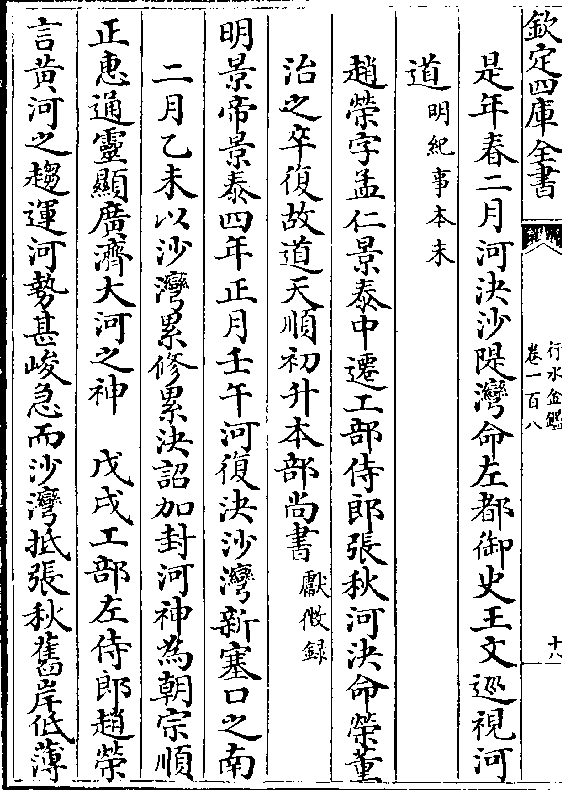 欽定四庫全書
行水金鑑
卷一百八
十八
是年春二月河決沙隄灣命左都御史王文巡視河
道明紀事本末
趙榮字孟仁景泰中遷工部侍郎張秋河決命榮董
治之卒復故道天順初升本部尚書獻徴録
明景帝景泰四年正月壬午河復決沙灣新塞口之南
二月乙未以沙灣累修累決詔加封河神為朝宗順
正惠通靈顯廣濟大河之神　戊戌工部左侍郎趙榮
言黄河之趨運河勢甚峻急而沙灣抵張秋舊岸低薄